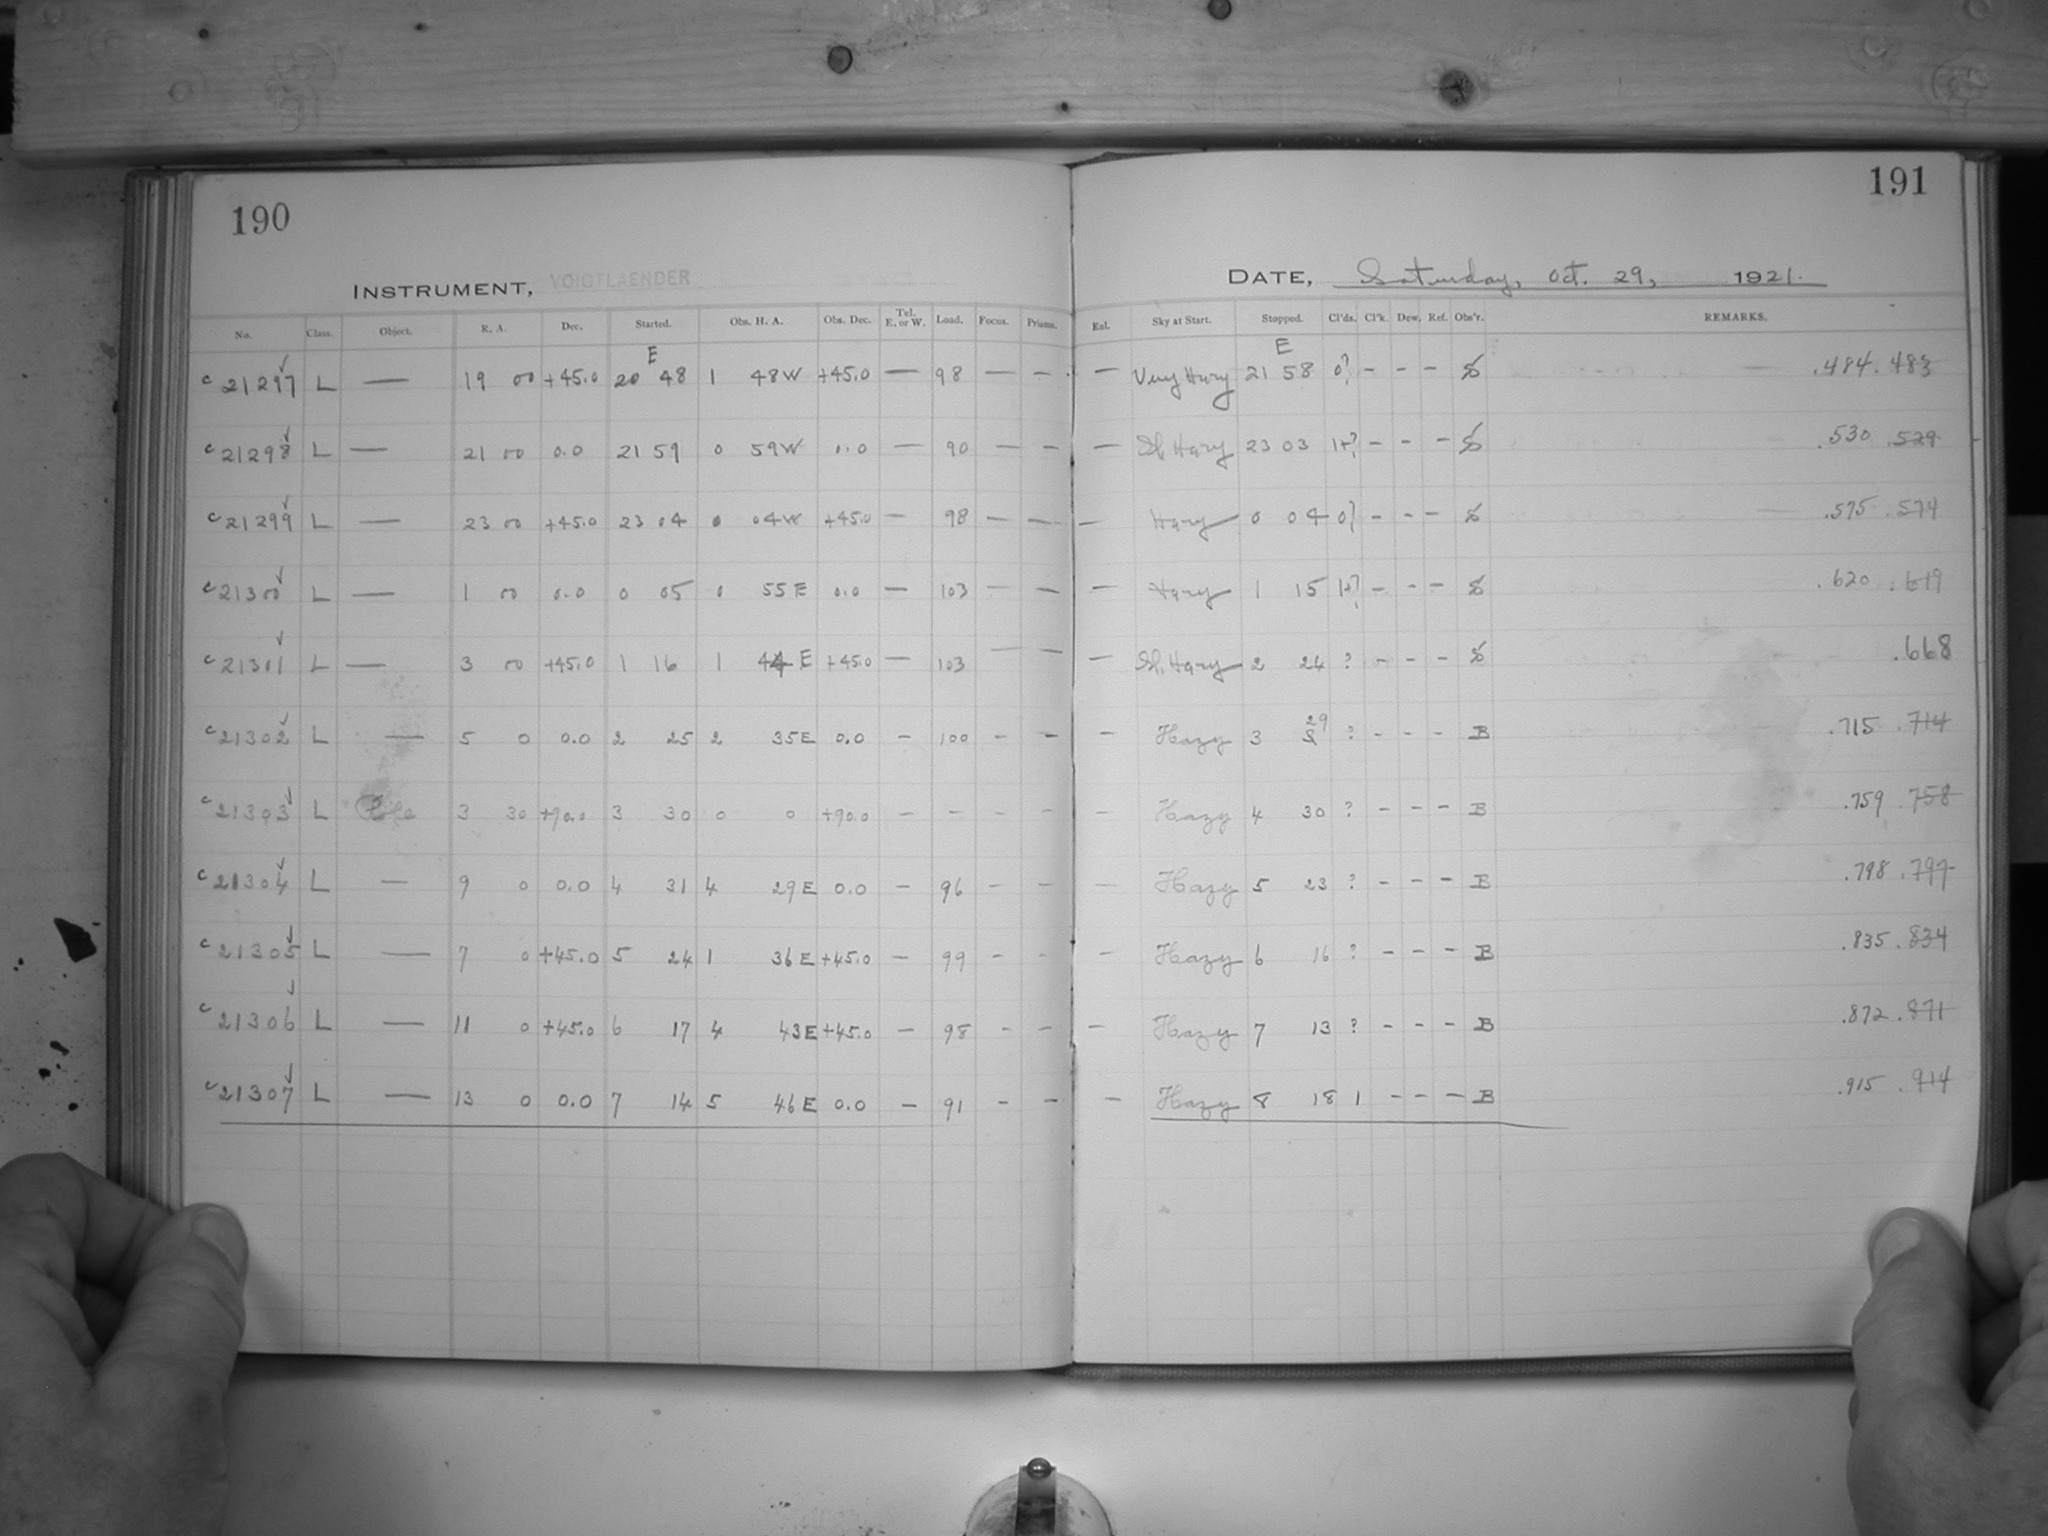 190
191
INSTRUMENT, VOIGTLAENDER
DATE, Saturday, Oct. 29, 1921.
No. Class. Object. R. A. Dec. Started. Obs. H. A. Obs. Dec. Tel. E. or W. Load. Focus. Prisms. Eal. Sky at Start. Stopped. Cl'ds. Cl'k. Dew. Ref. Obs'r. REMARKS.
E E
c 21297 L — 19 00 +45.0 20 48 1 48W +45.0 — 98 — — — Very Hazy 21 58 0? - - - S .484 .483
c 21298 L — 21 00 0.0 21 59 0 59W 0.0 — 90 — — — Sl. Hazy 23 03 1+? - - - S .530 .529
c 21299 L — 23 00 +45.0 23 04 0 04W +45.0 — 98 — — — Hazy 0 04 0? - - - S .575 .574
c 21300 L — 1 00 0.0 0 05 0 55E 0.0 — 103 — — — Hazy 1 15 1+? - - - S .620 .619
c 21301 L — 3 00 +45.0 1 16 1 44 E +45.0 — 103 — — — Sl. Hazy 2 24 ? - - - S .668
c 21302 L — 5 0 0.0 2 25 2 35E 0.0 - 100 - - - Hazy 3 29 ? - - - B .715 .714
c 21303 L Pole 3 30 +90.0 3 30 0 0 +90.0 - - - - - Hazy 4 30 ? - - - B .759 .758
c 21304 L — 9 0 0.0 4 31 4 29E 0.0 - 96 - - - Hazy 5 23 ? - - - B .798 .797
c 21305 L — 7 0 +45.0 5 24 1 36E +45.0 - 99 - - - Hazy 6 16 ? - - - B .835 .834
c 21306 L — 11 0 +45.0 6 17 4 43E +45.0 - 98 - - - Hazy 7 13 ? - - - B .872 .871
c 21307 L — 13 0 0.0 7 14 5 46E 0.0 - 91 - - - Hazy 8 18 1 - - - B .915 .914